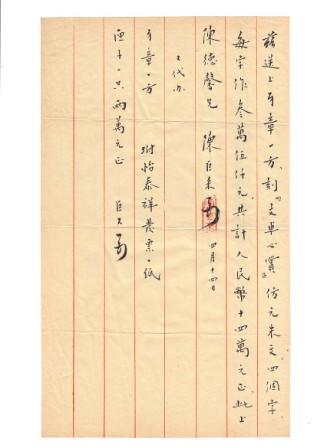 茲送上牙章一方刻「文章心賞」仿元朱文四個字
每字作叁萬伍仟元共計人民幣十四萬元正此上
陳德馨兄 陳巨來 四月十四日
代办
牙章一方 附怡泰祥發票一紙
匣子一只兩萬元正 巨又